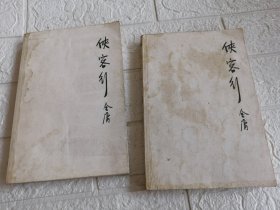 侠客行
金庸
侠客行
金庸